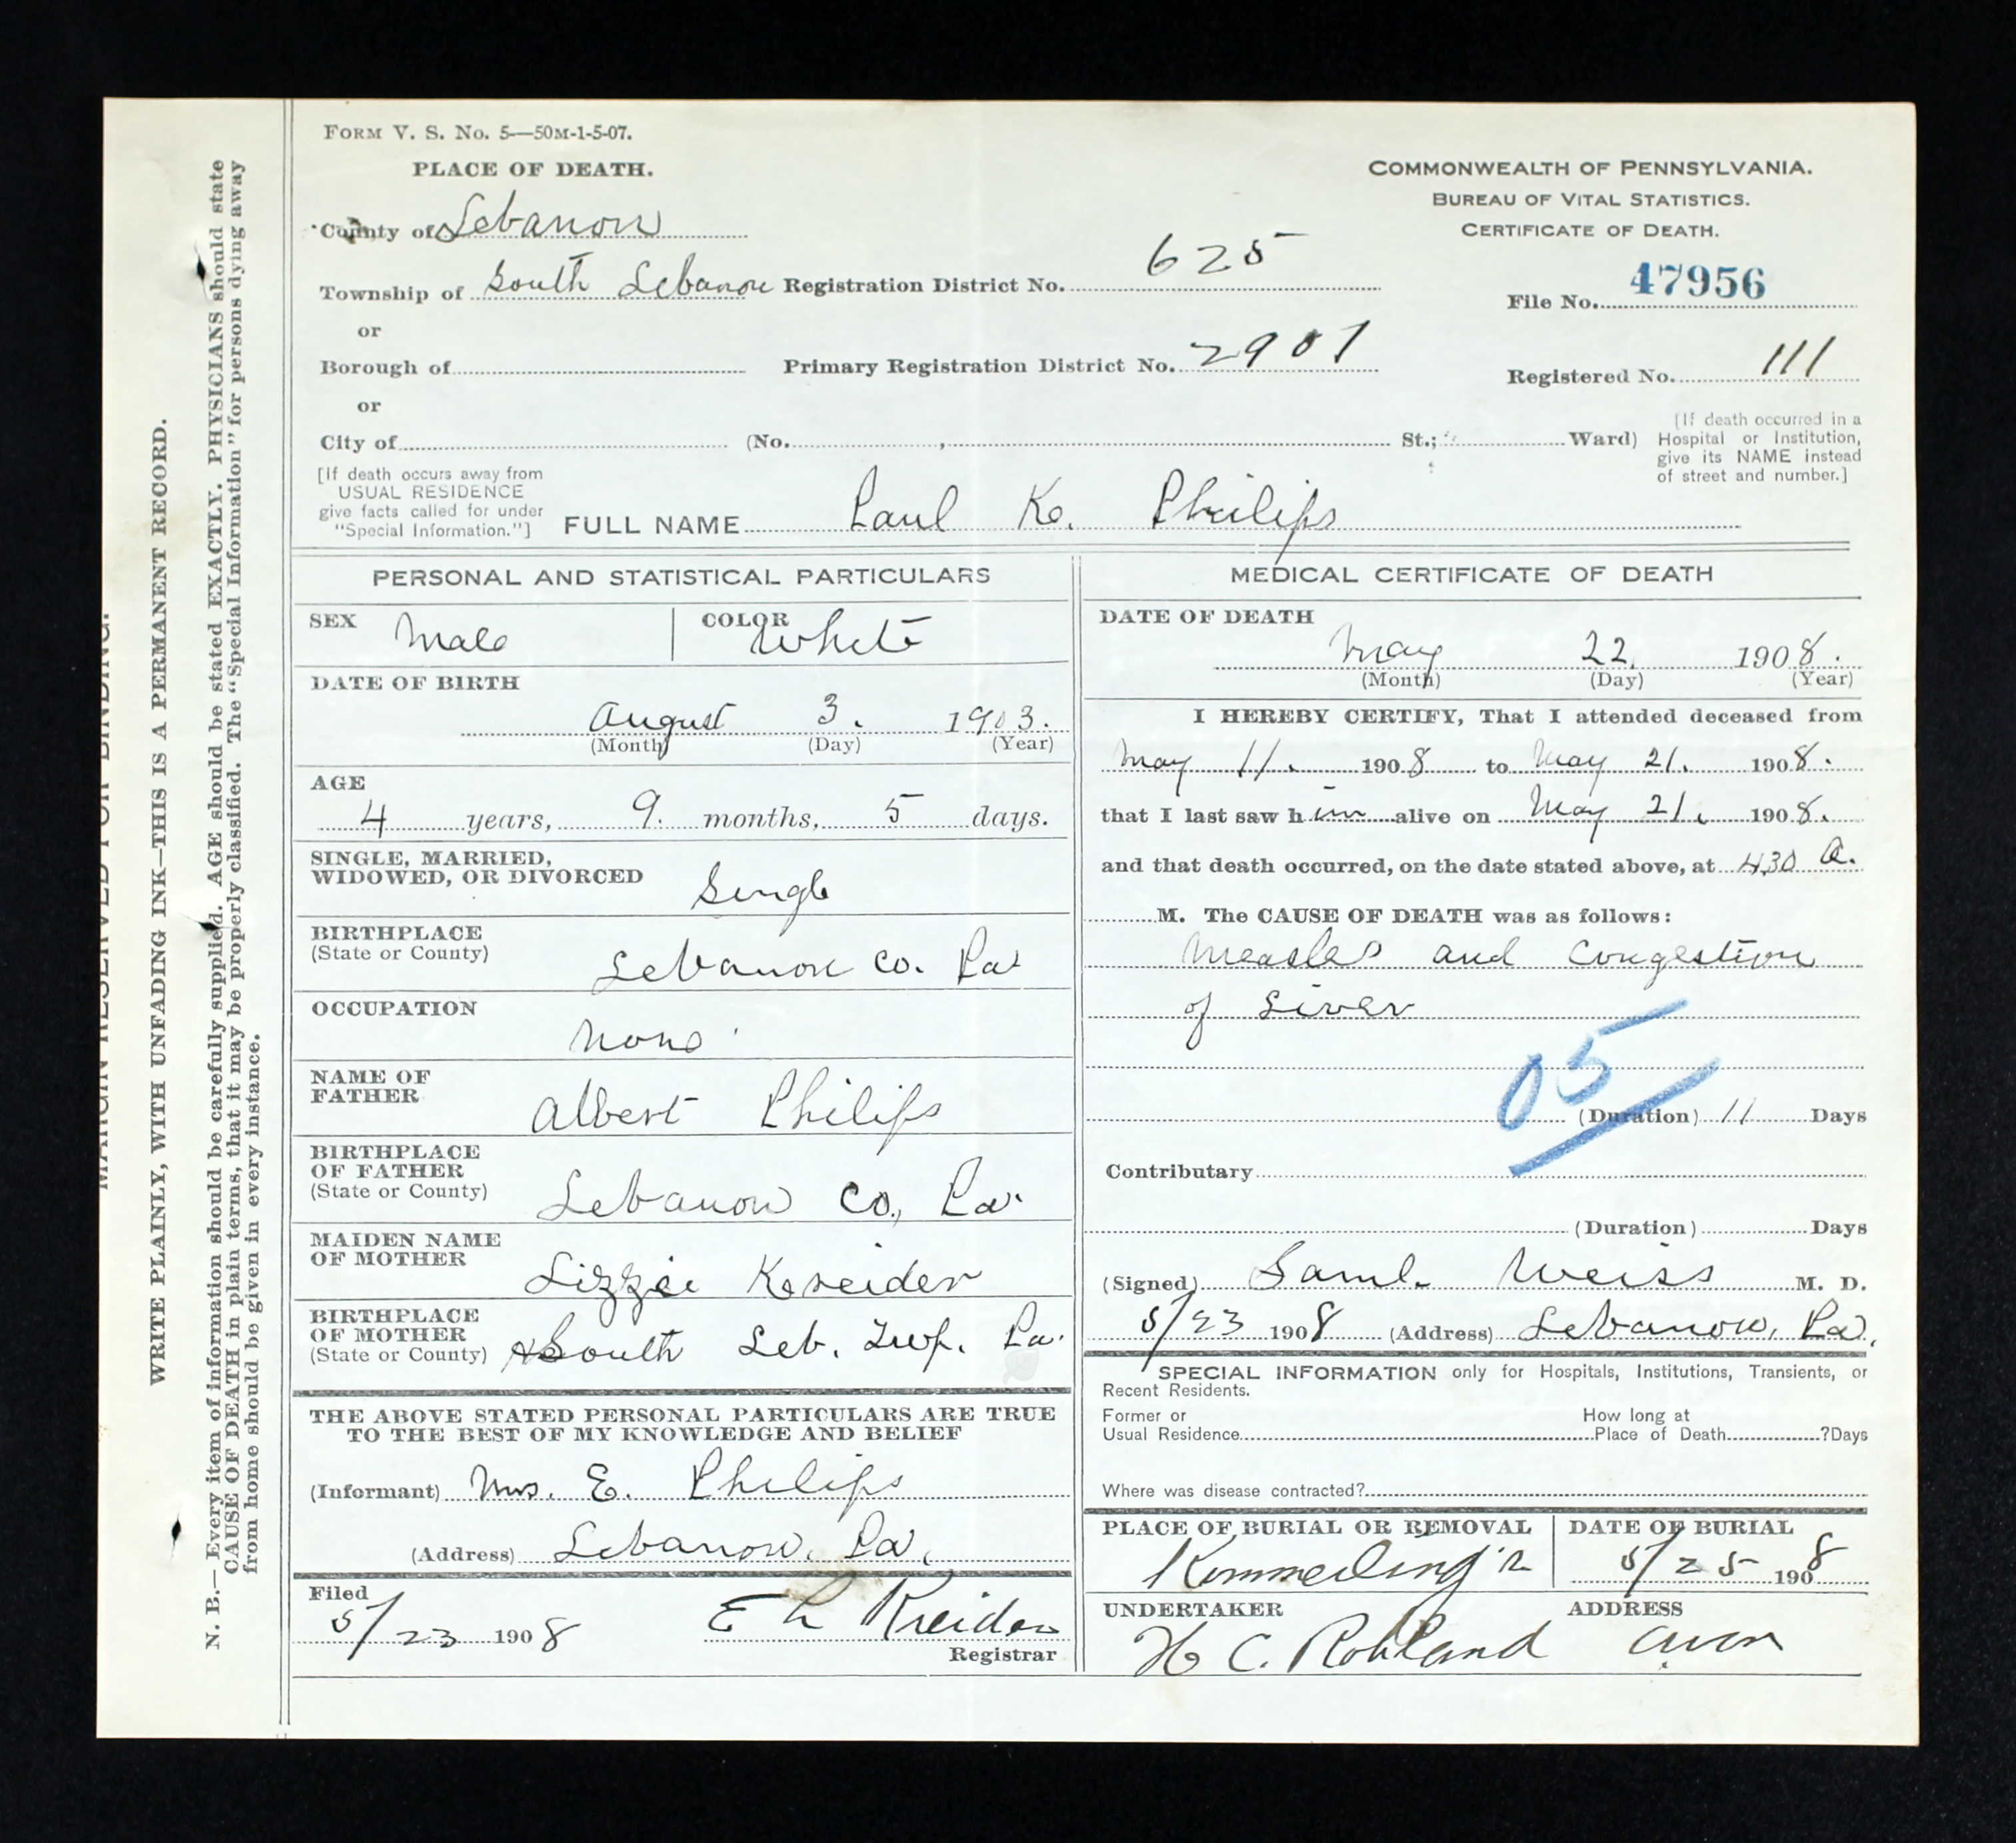 FORM V. S. No. 5—50M-1-5-07.
PLACE OF DEATH.
County of Lebanon
Township of South Lebanon
or
Borough of
or
City of (No. , St.; Ward)
Registration District No. 625
Primary Registration District No. 2901
COMMONWEALTH OF PENNSYLVANIA.
BUREAU OF VITAL STATISTICS.
CERTIFICATE OF DEATH.
File No. 47956
Registered No. 111
[If death occurred in a
Hospital or Institution,
give its NAME instead
of street and number.]
[If death occurs away from
USUAL RESIDENCE
give facts called for under
"Special Information."]
FULL NAME Paul K. Philips
PERSONAL AND STATISTICAL PARTICULARS
SEX Male
COLOR White
DATE OF BIRTH
August 3. 1903.
(Month) (Day) (Year)
AGE
4 years, 9. months, 5 days.
SINGLE, MARRIED,
WIDOWED, OR DIVORCED Single
BIRTHPLACE
(State or County) Lebanon Co. Pa
OCCUPATION
None
NAME OF
FATHER Albert Philips
BIRTHPLACE
OF FATHER
(State or County) Lebanon Co., Pa.
MAIDEN NAME
OF MOTHER Lizzie Kreider
BIRTHPLACE
OF MOTHER
(State or County) South Leb. Twp. Pa.
THE ABOVE STATED PERSONAL PARTICULARS ARE TRUE
TO THE BEST OF MY KNOWLEDGE AND BELIEF
(Informant) Mrs. E. Philips
(Address) Lebanon, Pa.
Filed
5/23 1908 E L Kreider
Registrar
MEDICAL CERTIFICATE OF DEATH
DATE OF DEATH
May 22, 1908.
(Month) (Day) (Year)
I HEREBY CERTIFY, That I attended deceased from
May 11. 1908 to May 21. 1908.
that I last saw him alive on May 21. 1908.
and that death occurred, on the date stated above, at 4.30 A.
M. The CAUSE OF DEATH was as follows:
Measles and Congestion
of Liver
05
(Duration) 11 Days
Contributary
(Duration) Days
(Signed) Saml. Weiss M. D.
5/23 1908 (Address) Lebanon, Pa.
SPECIAL INFORMATION only for Hospitals, Institutions, Transients, or
Recent Residents.
Former or
Usual Residence
How long at
Place of Death ?Days
Where was disease contracted?
PLACE OF BURIAL OR REMOVAL
Kimmerling's
DATE OF BURIAL
5/25 1908
UNDERTAKER
H C. Rohland
ADDRESS
Avon
MARGIN RESERVED FOR BINDING.
WRITE PLAINLY, WITH UNFADING INK—THIS IS A PERMANENT RECORD.
N. B.—Every item of information should be carefully supplied. AGE should be stated EXACTLY. PHYSICIANS should state
CAUSE OF DEATH in plain terms, that it may be properly classified. The "Special Information" for persons dying away
from home should be given in every instance.